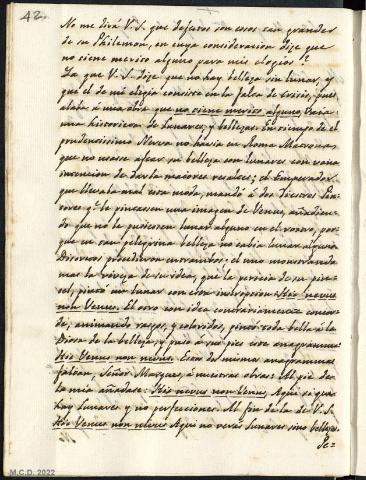 42.
No me dirá V. S. que defectos son esos tan grandes
de su Philemon, en cuya consideracion dize que
no tiene merito alguno para mis elogios?
Ya que V. S. dize que no hay belleza sin lunar, y
que el de mi elogio consiste en la falta de crisis, pues
alabo á una obra que no tiene merito alguno, vaya
una historieta de Lunares, y bellezas. En tiempo de el
prudentissimo Nerva no havia en Roma Matrona
que no usase afear su belleza con lunares con vana
intencion de darla maiores realces; el Emperador
que llevaba mal esta moda, mandó á dos diestros Pin-
tores q.e le pintassen una imagen de Venus, añadien-
do que no le pusiesen lunar alguno en el rostro, por-
que en tan pelegrina belleza no cabia lunar alguno.
Diversos procedieron entrambos; el uno mostrando
mas la viveza de su idea, que la pericia de su pin-
cel, pintó un lunar con esta inscripcion: Hic nevus
non Venus. El otro con idea contraria
do, animando rasgos, y coloridos, pintó toda bella á la
Diosa de la belleza, y puso á sus pies este anagramma
Hic Venus non nevus. Estos dos mismos anagrammas
faltan, Señor Marques, á nuestras obras: Al pie de
la mia añadase: Hic nevus non Venus. Aqui se que
hay Lunares y no perfecciones. Al fin de la de V. S.
Hic Venus non nevus Aqui no verás lunares sino bellezas.
Pe=
M.C.D. 2022